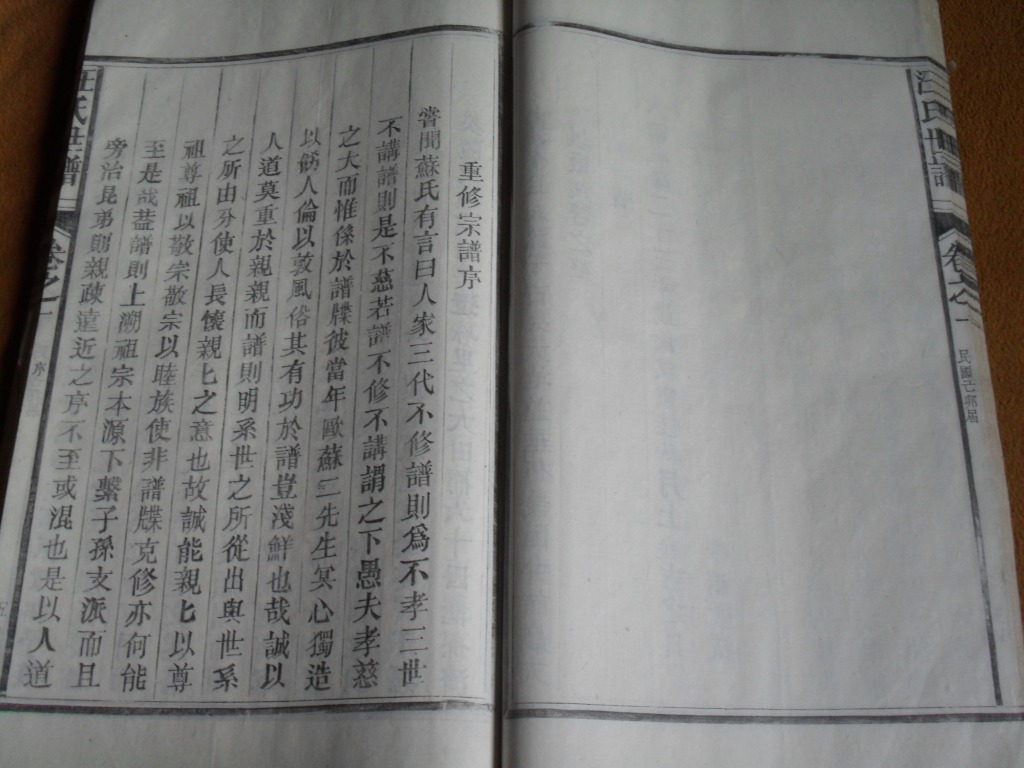 汪氏世譜
卷之一
民國己卯居
重修宗譜序
嘗聞蘇氏有言曰人家三代不修譜則爲不孝三世
不講譜則是不慈若譜不修不講謂之下愚夫孝慈
之大而惟係於譜牒彼當年歐蘇二先生冥心獨造
以飭人倫以敦風俗其有功於譜豈淺鮮也哉誠以
人道莫重於親親而譜則明系世之所從出與世系
之所由分使人長懷親匕之意也故誠能親匕以尊
祖尊祖以敬宗敬宗以睦族使非譜牒克修亦何能
至是哉葢譜則上溯祖宗本源下繫子孫支派而且
旁治昆弟則親疎遠近之序不至或混也是以人道
汪氏世譜
卷之一
五